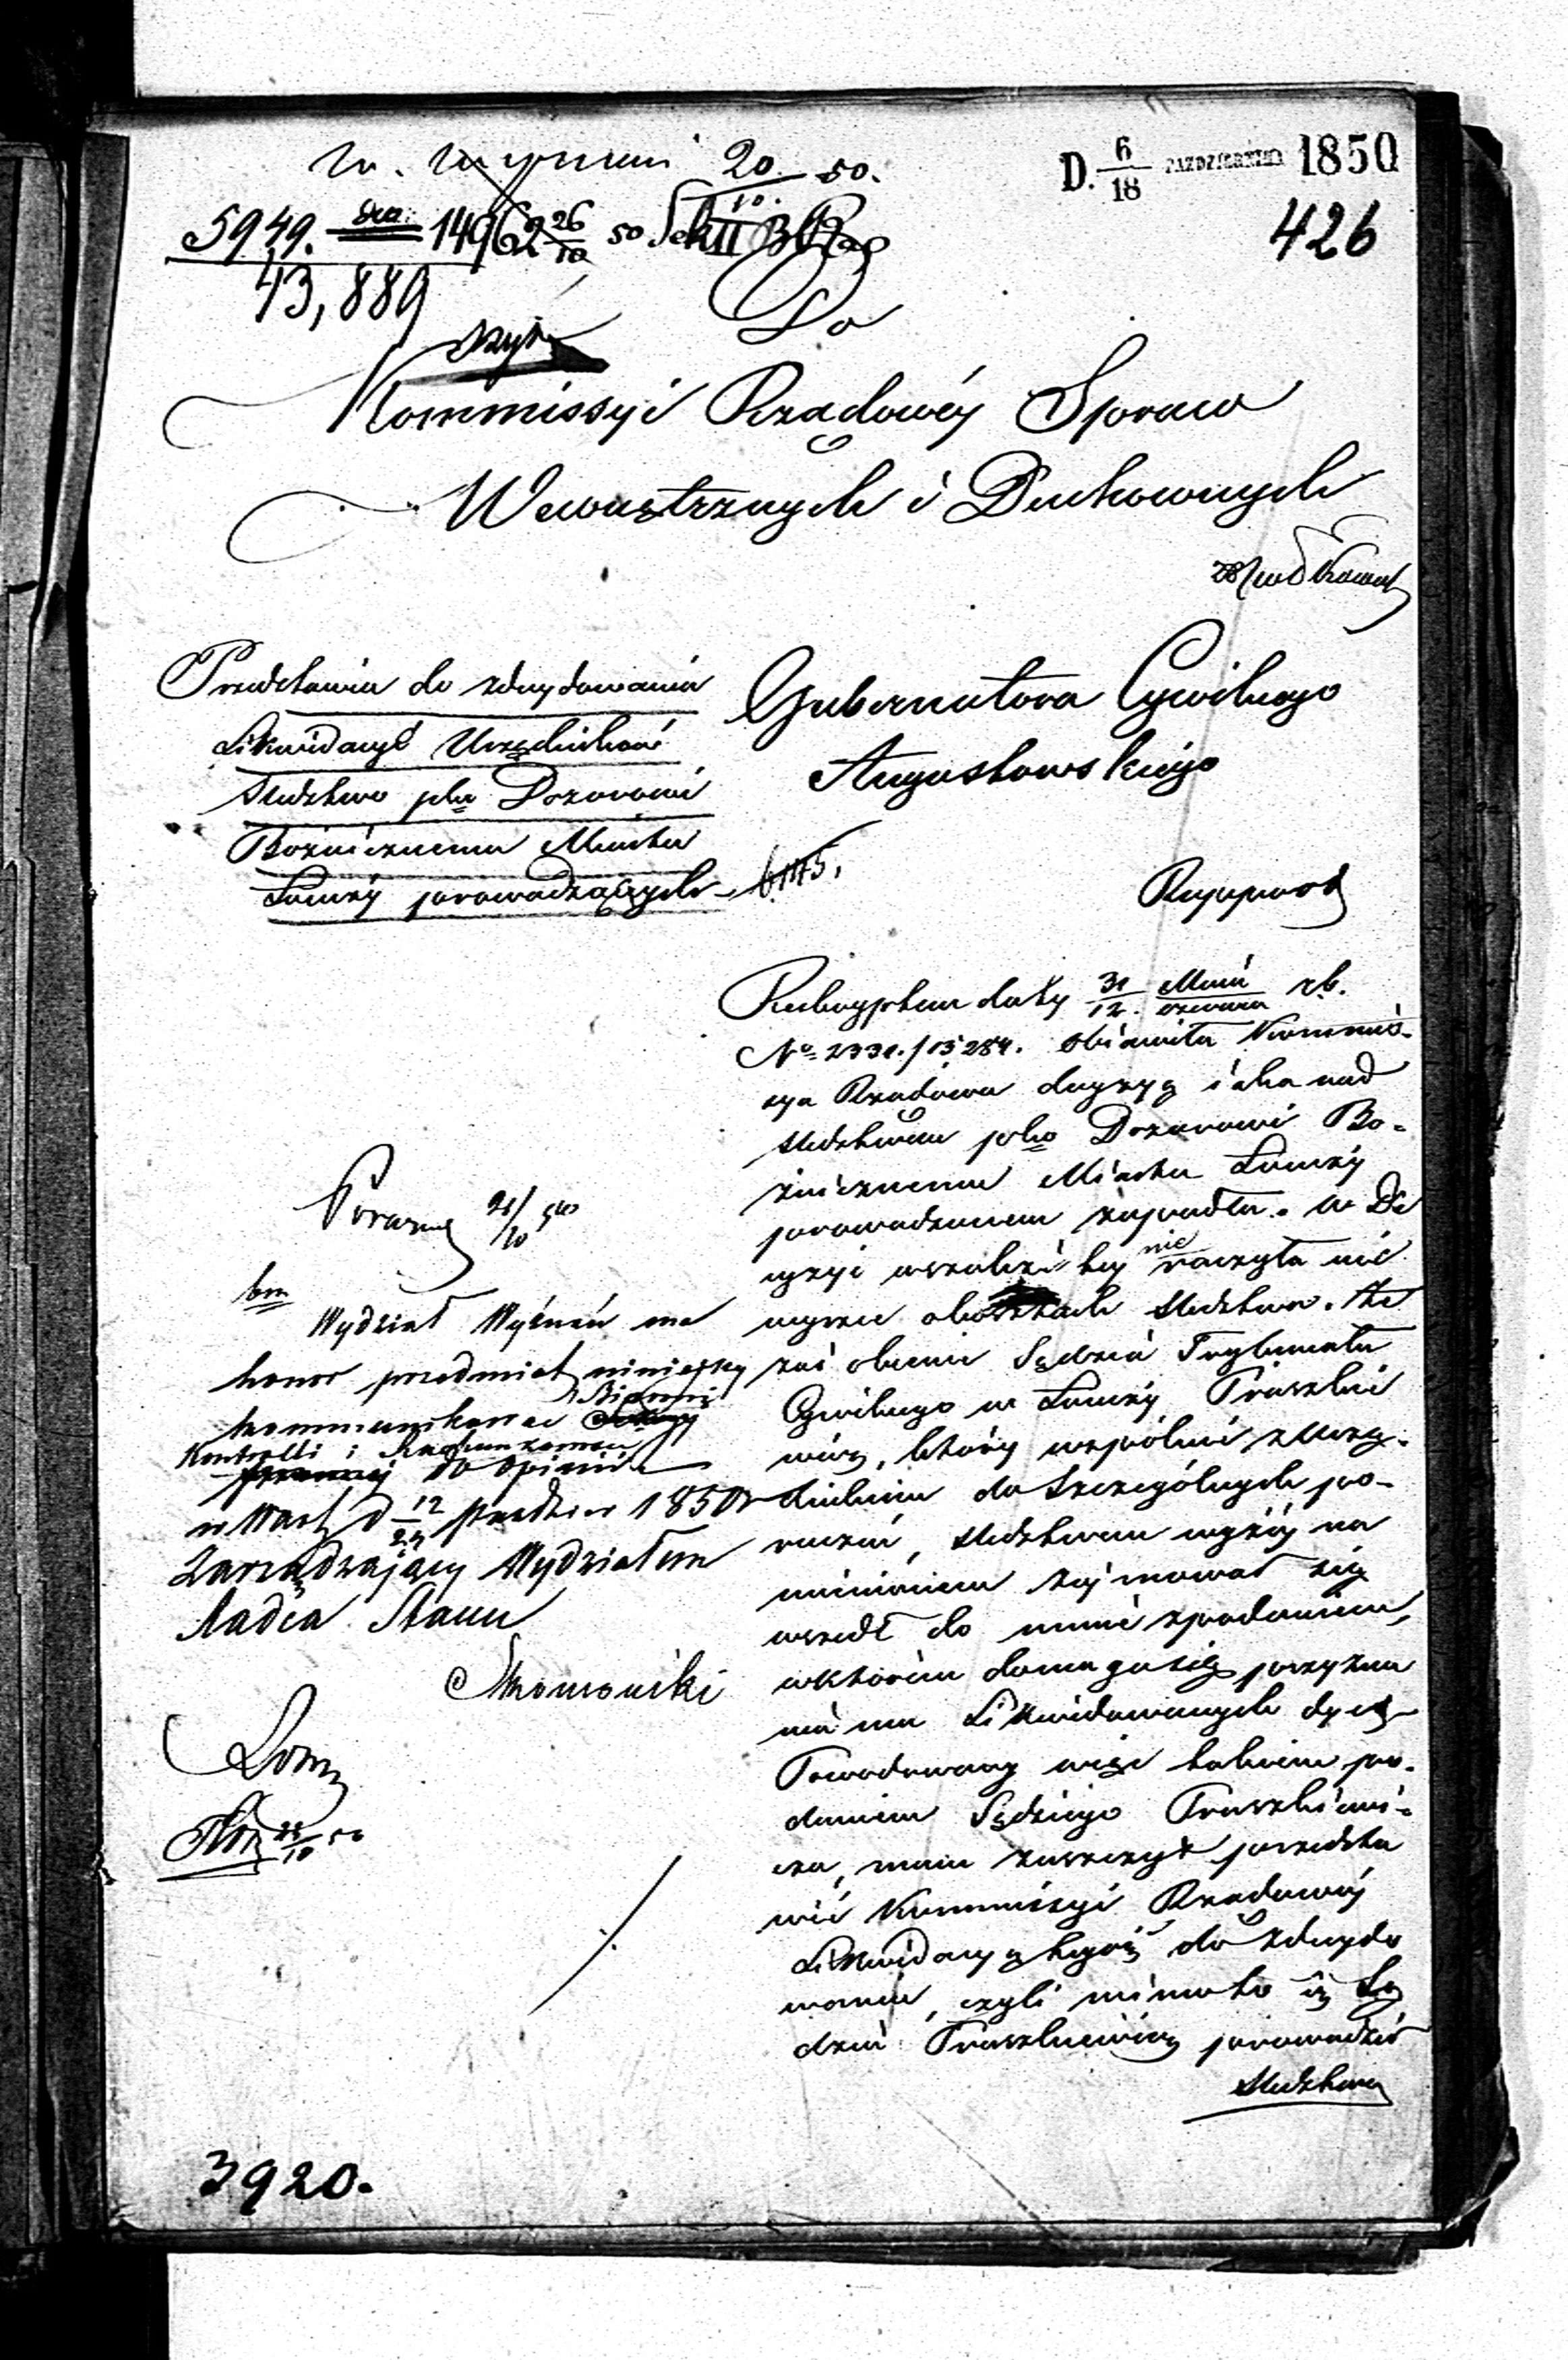 W. Wyznań 20/10 50.
D. 6/18 PAZDZIERNIKA 1850
5949. 14962 26/10 50 Sek II
426
43,889
Do
Kommissyi Rządowéy Spraw
Wewnętrznych i Duchownych
Przedstawia do zdecydowania
Likwidacyę Urzędników
śledztwo plko Dozorowi
Bożniczemu Miasta
Łomży prowadzących
Gubernatora Cywilnego
Augustowskiego
Rapport
Reskryptem daty 31/12 Maja/czerwca r.b.
No 2331./15284. obiawiła Kommis-
sya Rządowa decyzyę iaka nad
śledztwem plko Dozorowi Bo-
żniczemu Miasta Łomży
prowadzonem zapadła. w De
cyzyi wszakże tey nie raczyła nic
wyrzec o kosztach śledztwa. Że
zaś obecnie Sędzia Trybunału
Cywilnego w Łomży Truszkie
wicz, który wspólnie z Urzę-
dnikiem do szczególnych po-
ruczeń, śledztwem wyżéj na
mienionem zajmował się
wszedł do mnie z podaniem,
w którém domaga się przyzna
nia mu Likwidowanych dyet,
Powodowany więc takiem po-
daniem Sędziego Truszkiewi-
cza, mam zaszczyt przedsta
wić Kommissyi Rządowéy
Likwidacyę tegoż do zdecydo
wania, czyli mimo to iż Sę
dzia Truszkiewicz prowadził
śledztwo
21/10 50
Wydział Wyznań ma
honor przedmiot niniejszy
kommunikować
Kontrolli i Rachunkowości
do opinii
w Warsz d 12/24 Paździer 1850 r
Zarządzający Wydziałem
Radca Stanu
3920.